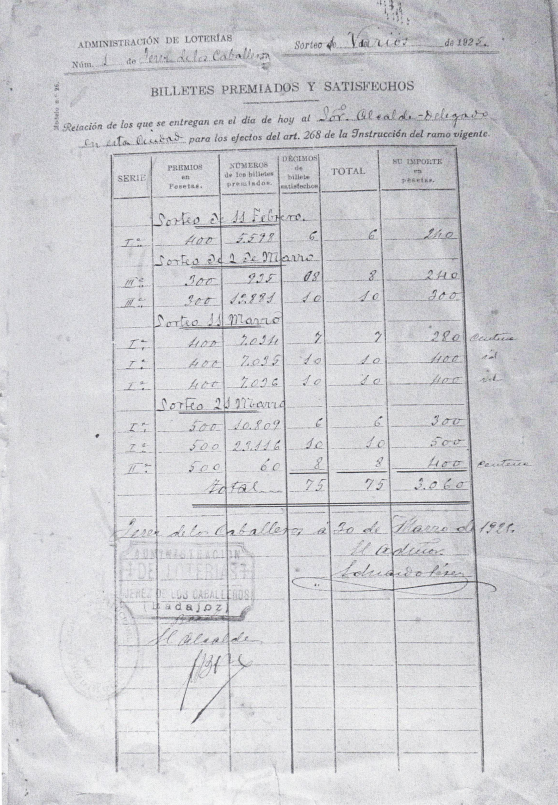 ADMINISTRACIÓN DE LOTERÍAS
Núm. 1 de Jerez de los Caballeros
Sorteo de Varios de 1925.
Modelo n.º
BILLETES PREMIADOS Y SATISFECHOS
Relación de los que se entregan en el día de hoy al Sor. Alcalde-Delegado
en esta Ciudad para los efectos del art. 268 de la Instrucción del ramo vigente.
SERIE PREMIOS en Pesetas. NÚMEROS de los billetes premiados. DÉCIMOS de billete satisfechos TOTAL SU IMPORTE en pesetas.
Sorteo de 11 Febrero.
Iª 400 5.598 6 6 240
Sorteo de 2 de Marzo
IIIª 300 935 08 8 240
IIIª 300 12.881 10 10 300
Sorteo 11 Marzo
Iª 400 7.034 7 7 280 centena
Iª 400 7.035 10 10 400 id
Iª 400 7.036 10 10 400 id
Sorteo 21 Marzo
Iª 500 10.809 6 6 300
Iª 500 23.116 10 10 500
IIª 500 60 8 8 400 centena
Total 75 75 3.060
Jerez de los Caballeros á 30 de Marzo de 192
El Admor.
Eduardo Pérez
ADMINISTRACION
DE LOTERIAS
JEREZ DE LOS CABALLEROS
(Badajoz)
El Alcalde